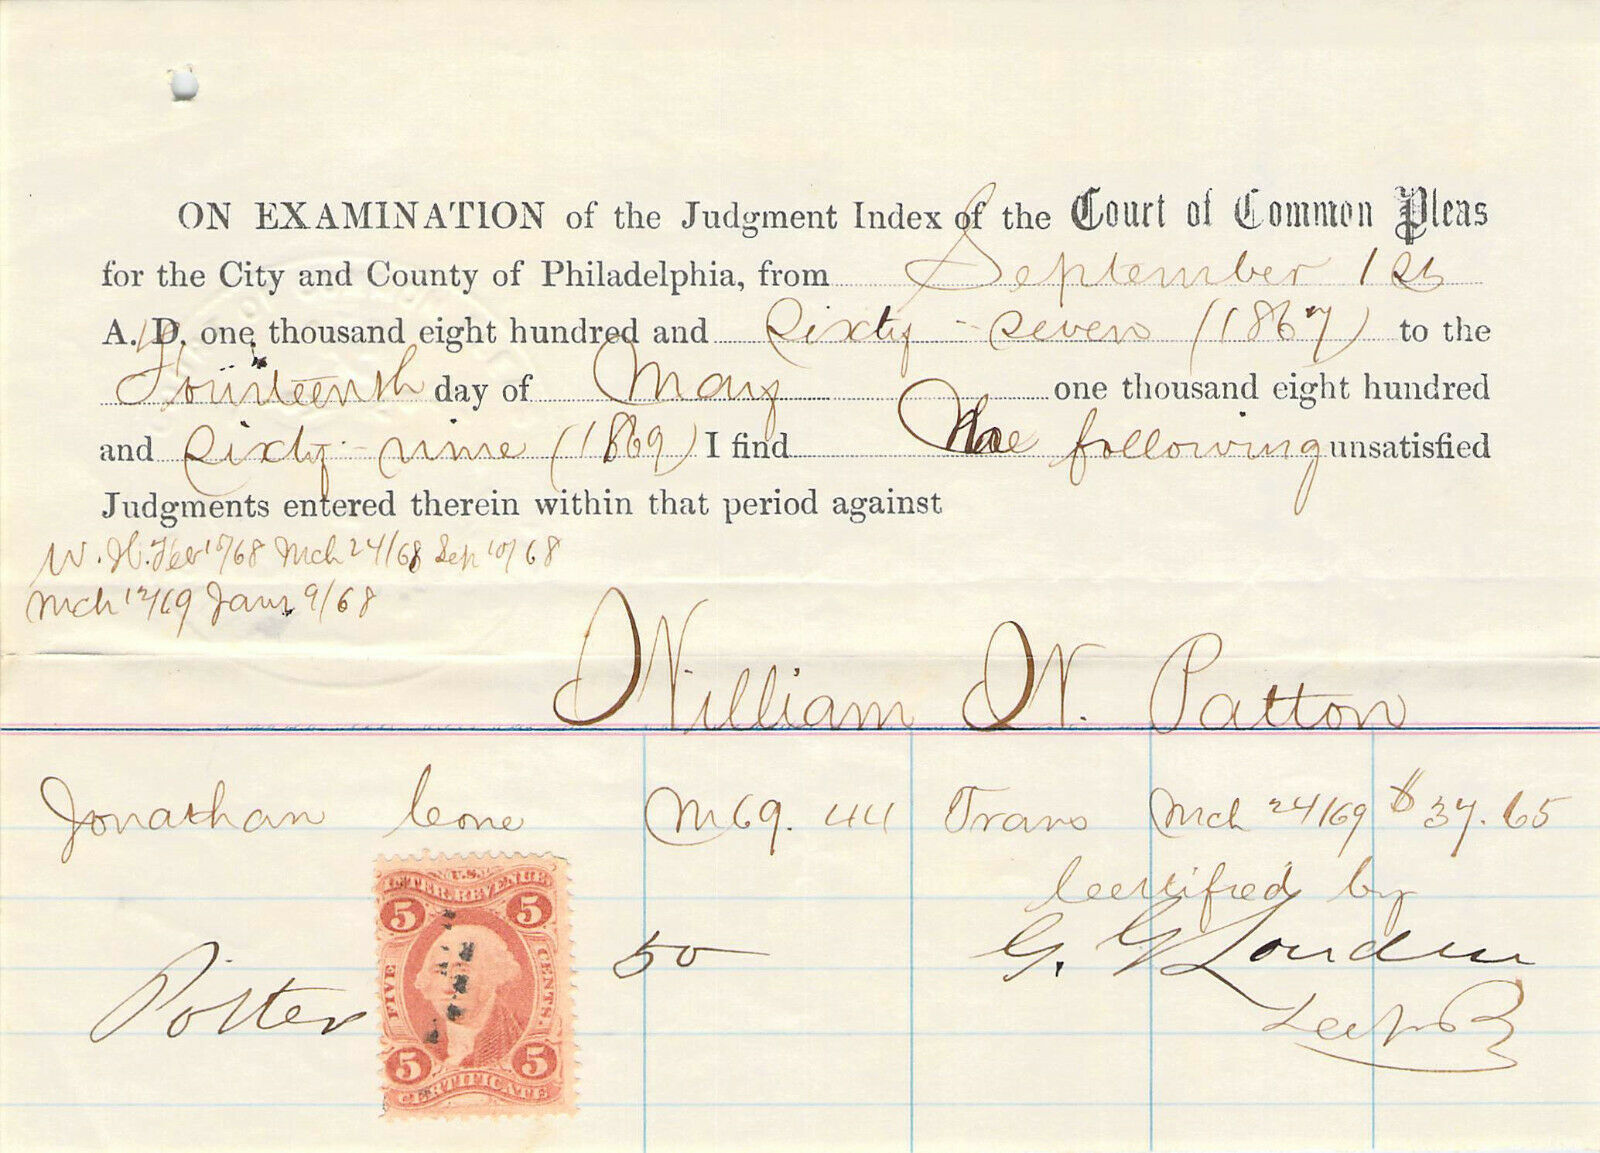 ON EXAMINATION of the Judgment Index of the Court of Common Pleas
for the City and County of Philadelphia, from September 1st
A. D. one thousand eight hundred and Sixty-Seven (1867) to the
Fourteenth day of May one thousand eight hundred
and Sixty-nine (1869) I find the following unsatisfied
Judgments entered therein within that period against
W. H. Feb 15/68 Mch 24/68 Sep 10/68
Mch 12/69 Jany 9/68
William W. Patton
Jonathan Cone M69. 44 Trans Mch 24/69 $37.65
Certified by
Potter 50 G. G.
U.S.
INTER. REVENUE
5 5
FIVE CENTS.
5 5
CERTIFICATE